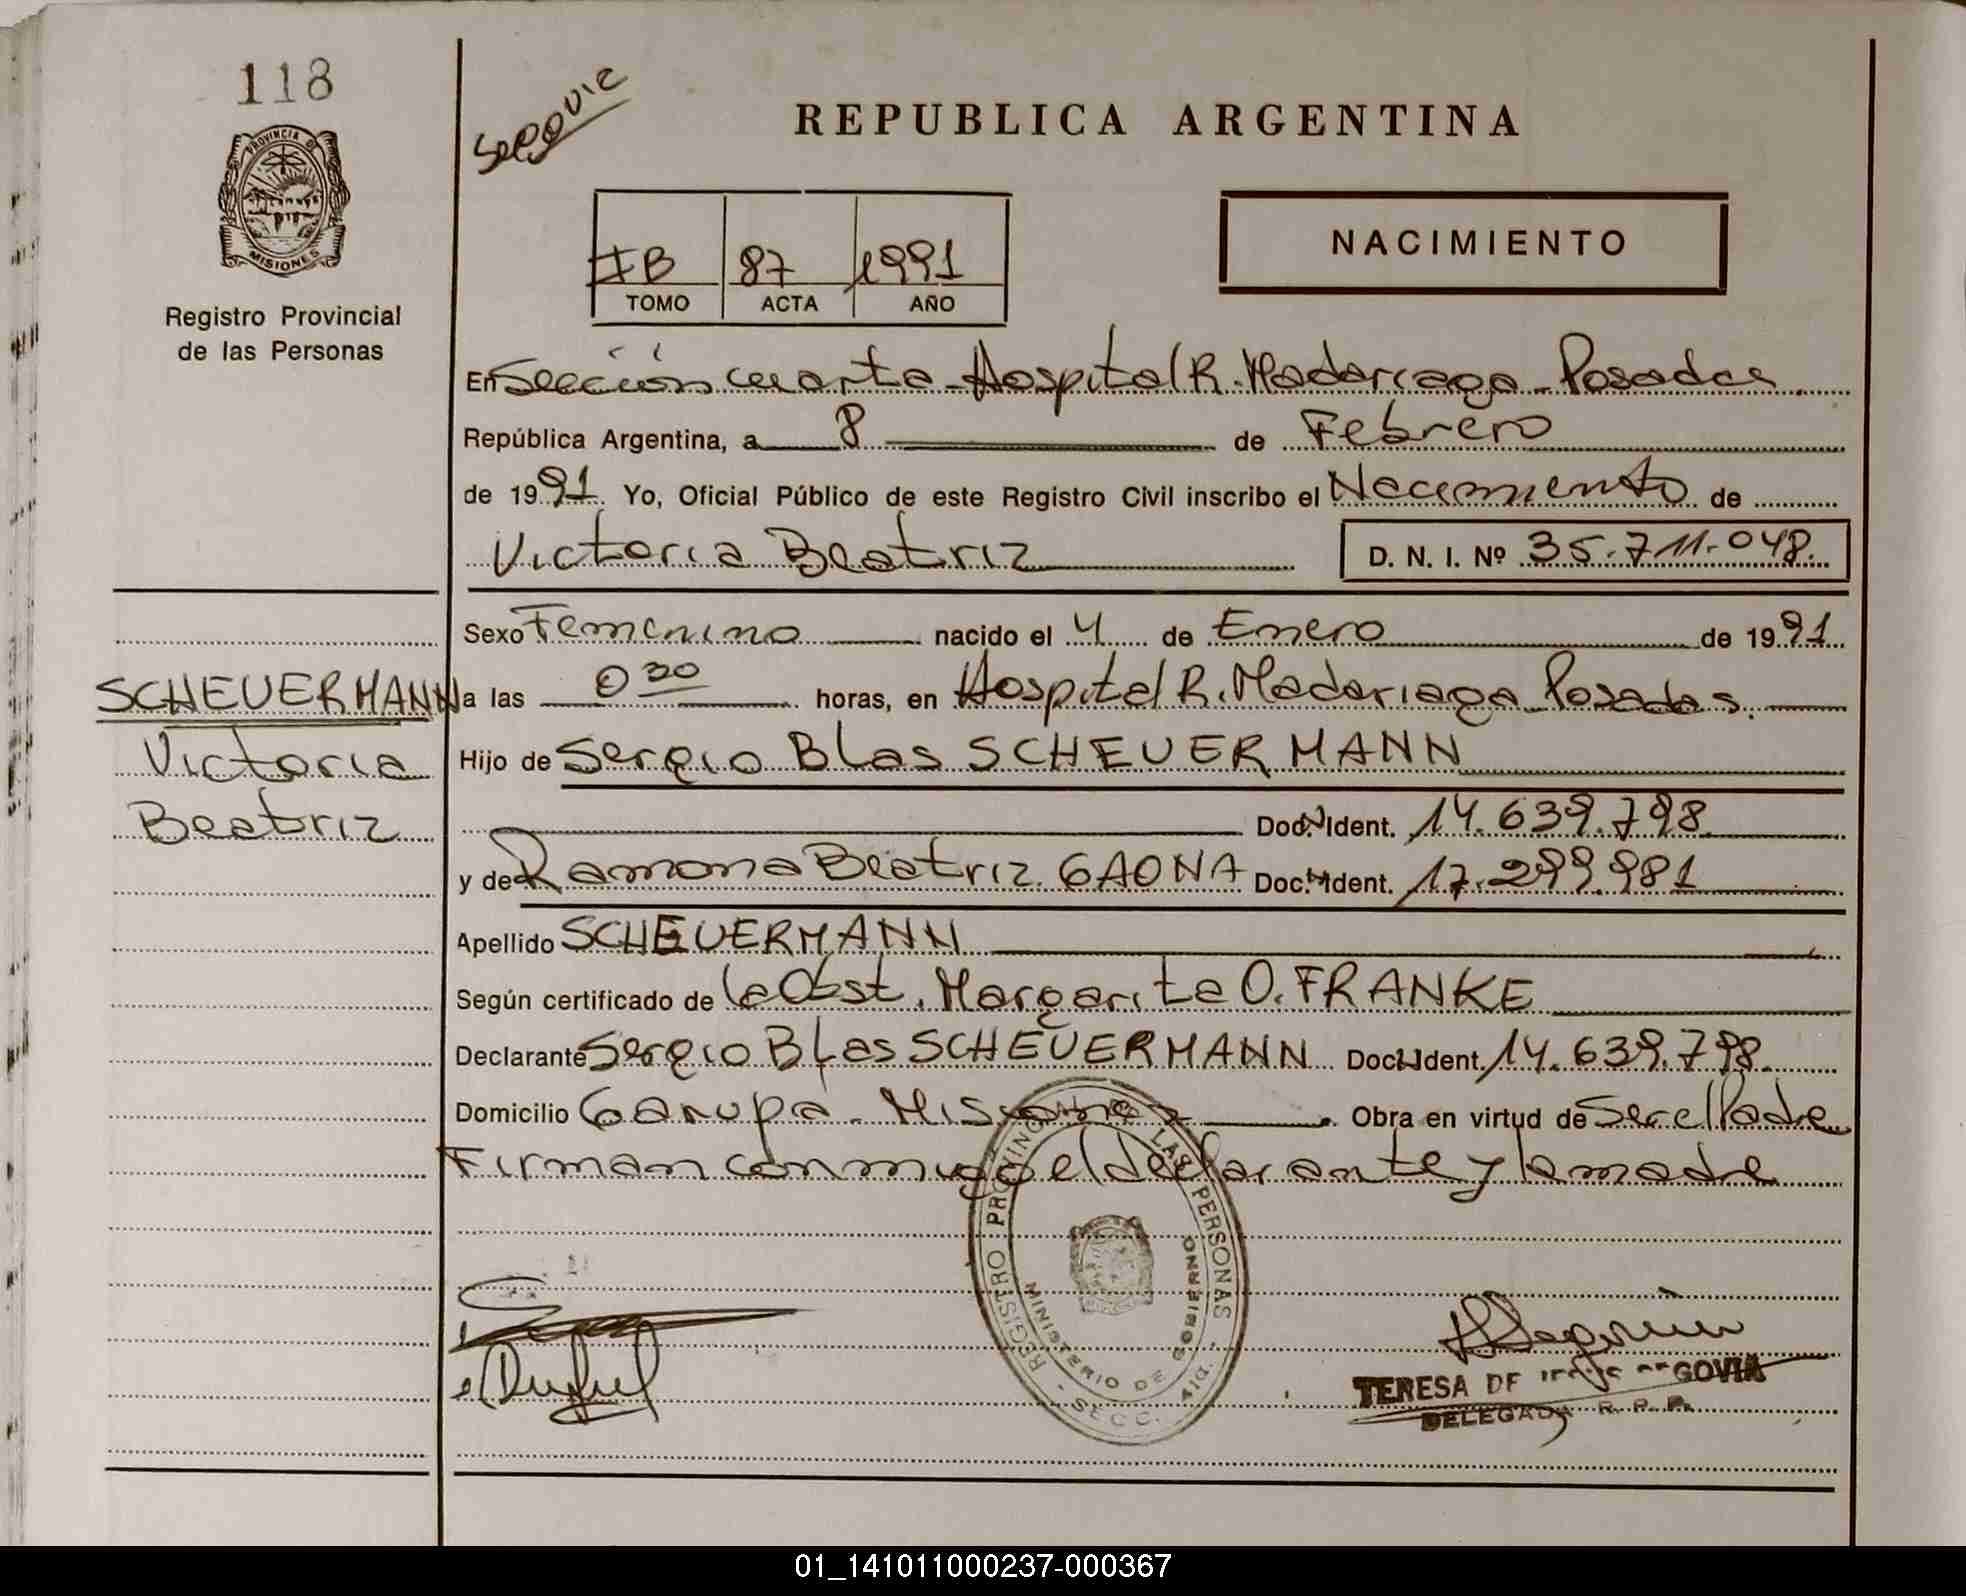 118
PROVINCIA DE
MISIONES
Registro Provincial
de las Personas
REPUBLICA ARGENTINA
NACIMIENTO
IB 87 1991
TOMO ACTA AÑO
En Sección cuarta Hospital R. Madariaga - Posadas
República Argentina, a 8 de Febrero
de 1991. Yo, Oficial Público de este Registro Civil inscribo el Nacimiento de
Victoria Beatriz D. N. I. Nº 35.711.048.
Sexo Femenino nacido el 4 de Enero de 1991
SCHEUERMANN
Victoria
Beatriz
a las 0 30 horas, en Hospital R. Madariaga Posadas.
Hijo de Sergio Blas SCHEUERMANN
Doc. N Ident. 14.639.798
y de Ramona Beatriz GAONA Doc. N Ident. 17.299.981
Apellido SCHEUERMANN
Según certificado de la Obst. Margarita O. FRANKE
Declarante Sergio Blas SCHEUERMANN Doc. N Ident. 14.639.798.
Domicilio Garupá - Misiones Obra en virtud de ser el Padre
Firman conmigo el declarante y la madre
REGISTRO PROVINCIAL DE LAS PERSONAS
MINISTERIO DE GOBIERNO
SECC. 4ta.
TERESA DE SEGOVIA
DELEGADA R. P. P.
01_141011000237-000367